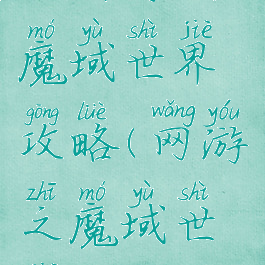 mó yù shì jiè
魔域世界
gōng lüè wǎng yóu
攻略(网游
zhī mó yù shì
之魔域世